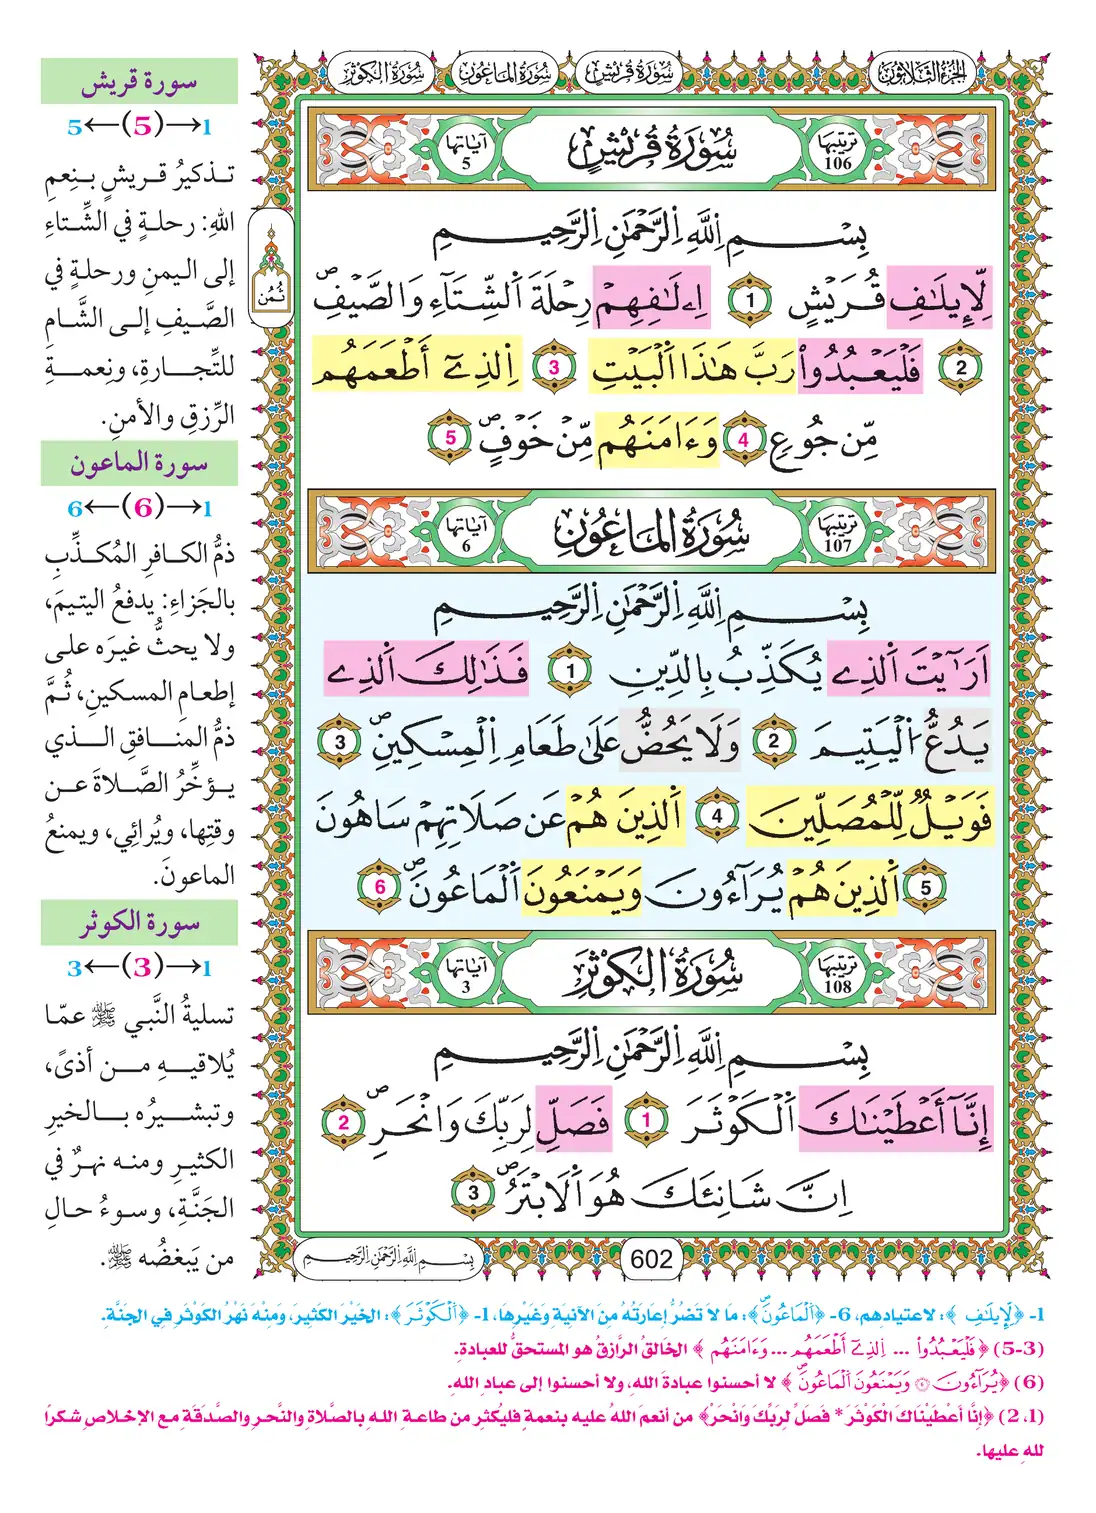 الجزء الثلاثون
سورة قريش
سورة الماعون
سورة الكوثر
ترتيبها 106
سُورَةُ قُرَيْشٍ
آياتها 5
بِسْمِ اِ۬للَّهِ اِ۬لرَّحْمَٰنِ اِ۬لرَّحِيمِ
لِّإِيلَٰفِ قُرَيْشٍ 1 اِ۪لَٰفِهِمْ رِحْلَةَ اَ۬لشِّتَآءِ وَالصَّيْفِۖ
2 فَلْيَعْبُدُواْ رَبَّ هَٰذَا اَ۬لْبَيْتِ 3 اِ۬لذِےٓ أَطْعَمَهُم
مِّن جُوعٍ 4 وَءَامَنَهُم مِّنْ خَوْفٍۖ 5
ثمن
ترتيبها 107
سُورَةُ المَاعُونِ
آياتها 6
بِسْمِ اِ۬للَّهِ اِ۬لرَّحْمَٰنِ اِ۬لرَّحِيمِ
اَرَٰٓيْتَ اَ۬لذِے يُكَذِّبُ بِالدِّينِ 1 فَذَٰلِكَ اَ۬لذِے
يَدُعُّ اُ۬لْيَتِيمَ 2 وَلَا يَحُضُّ عَلَىٰ طَعَامِ اِ۬لْمِسْكِينِۖ 3
فَوَيْلٌ لِّلْمُصَلِّينَ 4 اَ۬لذِينَ هُمْ عَن صَلَاتِهِمْ سَاهُونَ
5 اَ۬لذِينَ هُمْ يُرَآءُونَ وَيَمْنَعُونَ اَ۬لْمَاعُونَۖ 6
ترتيبها 108
سُورَةُ الكَوْثَرِ
آياتها 3
بِسْمِ اِ۬للَّهِ اِ۬لرَّحْمَٰنِ اِ۬لرَّحِيمِ
إِنَّآ أَعْطَيْنَٰكَ اَ۬لْكَوْثَرَ 1 فَصَلِّ لِرَبِّكَ وَانْحَرِۖ 2
اِنَّ شَانِئَكَ هُوَ اَ۬لَابْتَرُۖ 3
602
بِسْمِ اِ۬للَّهِ اِ۬لرَّحْمَٰنِ اِ۬لرَّحِيمِ
سورة قريش
1→(5)←5
تذكيرُ قريشٍ بنِعمِ
اللهِ: رحلةٍ في الشِّتاءِ
إلى اليمنِ ورحلةٍ في
الصَّيفِ إلى الشَّامِ
للتِّجارةِ، ونِعمةِ
الرِّزقِ والأمنِ.
سورة الماعون
1→(6)←6
ذمُّ الكافرِ المُكذِّبِ
بالجَزاءِ: يدفعُ اليتيمَ،
ولا يحثُّ غيرَه على
إطعامِ المسكينِ، ثُمَّ
ذمُّ المنافقِ الذي
يؤخِّرُ الصَّلاةَ عن
وقتِها، ويُرائِي، ويمنعُ
الماعونَ.
سورة الكوثر
1→(3)←3
تسليةُ النَّبي ﷺ عمّا
يُلاقيهِ من أذىً،
وتبشيرُه بالخيرِ
الكثيرِ ومنه نهرٌ في
الجَنَّةِ، وسوءُ حالِ
من يَبغضُه ﷺ.
1- ﴿لِّإِيلَٰفِ﴾: لاعتيادِهِم، 6- ﴿اَ۬لْمَاعُونَۖ﴾: مَا لَا تَضُرُّ إعَارَتُهُ مِنَ الآنِيَةِ وَغَيْرِهَا، 1- ﴿اَ۬لْكَوْثَرَ﴾: الخَيْرَ الكَثِيرَ، وَمِنْهُ نَهْرُ الكَوْثَرِ فِي الجَنَّةِ.
(3-5) ﴿فَلْيَعْبُدُواْ ... اِ۬لذِےٓ أَطْعَمَهُم ... وَءَامَنَهُم﴾ الخَالقُ الرَّازقُ هو المستحقُّ للعبادةِ.
(6) ﴿يُرَآءُونَ ۝ وَيَمْنَعُونَ اَ۬لْمَاعُونَۖ﴾ لا أحسنوا عبادةَ اللهِ، ولا أحسنوا إلى عبادِ اللهِ.
(1، 2) ﴿إِنَّا أَعْطَيْنَاكَ الْكَوْثَرَ * فَصَلِّ لِرَبِّكَ وَانْحَرْ﴾ من أنعمَ اللهُ عليه بنعمةٍ فليُكثِر من طاعةِ اللهِ بالصَّلاةِ والنَّحرِ والصَّدقةِ مع الإخلاصِ شكرًا
للهِ عليها.